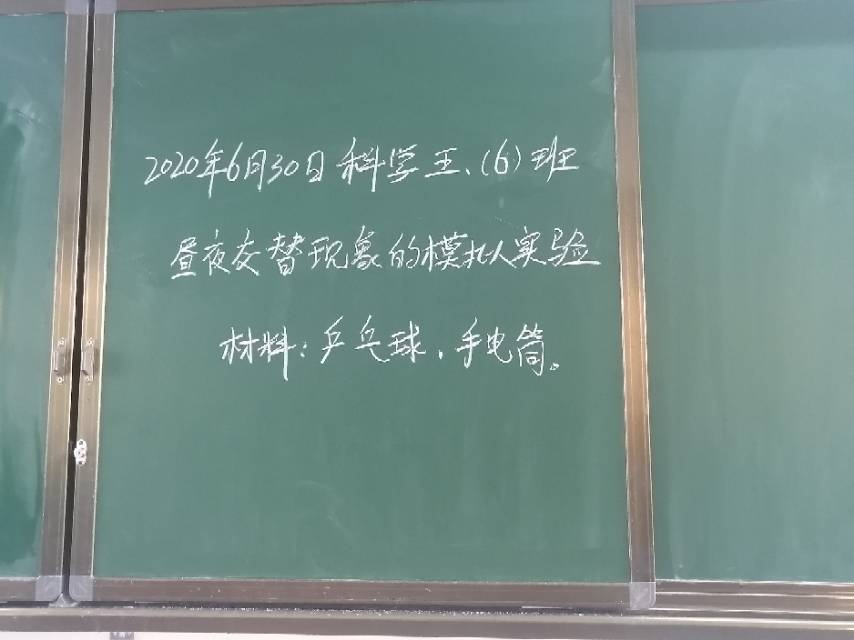 2020年6月30日 科学 五、(6)班
昼夜交替现象的模拟实验
材料：乒乓球、手电筒。